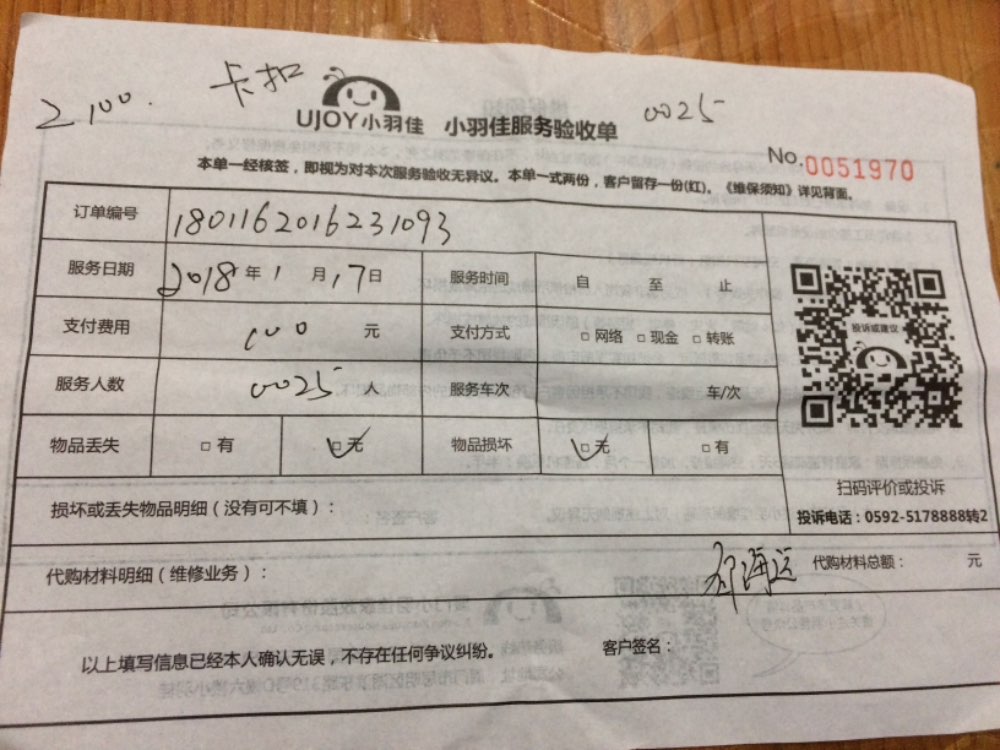 2100. 卡扣
UJOY小羽佳 小羽佳服务验收单 0025
No.0051970
本单一经核签，即视为对本次服务验收无异议。本单一式两份，客户留存一份(红)。《维保须知》详见背面。
订单编号 180116201623 1093
服务日期 2018年1月17日 服务时间 自 至 止
支付费用 100元 支付方式 □网络 □现金 □转账
服务人数 0025人 服务车次 车/次
物品丢失 □有 ☑无 物品损坏 ☑无 □有
投诉或建议
扫码评价或投诉
投诉电话：0592-5178888转2
损坏或丢失物品明细（没有可不填）：
代购材料明细（维修业务）： 代购材料总额： 元
以上填写信息已经本人确认无误，不存在任何争议纠纷。 客户签名：